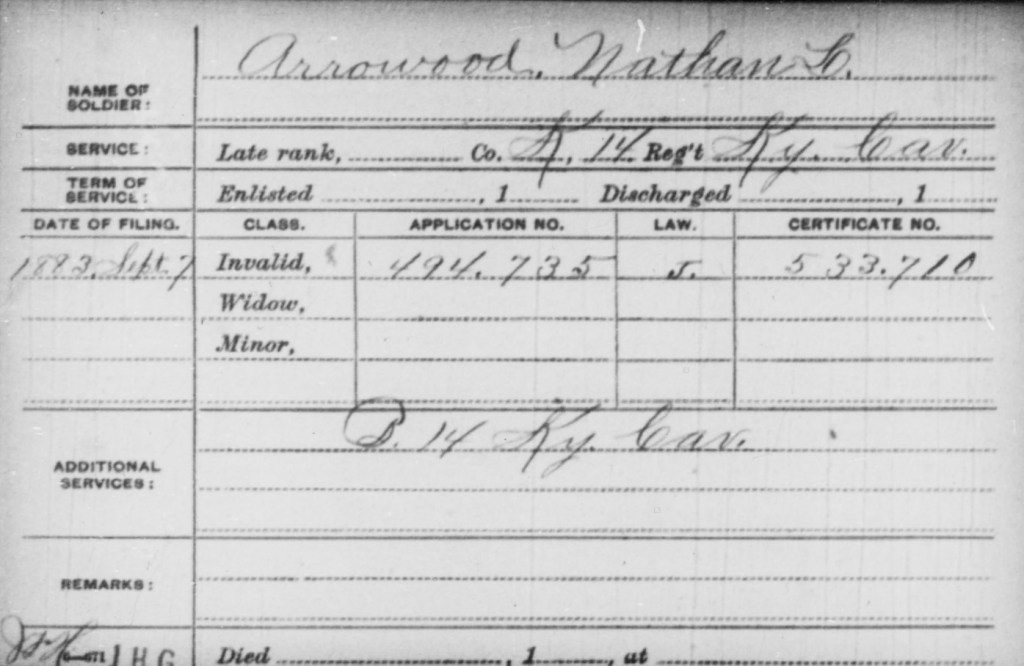 Arrowood, Nathan L.
NAME OF
SOLDIER:
SERVICE: Late rank, Co. K, 14 Reg't Ky. Cav.
TERM OF
SERVICE: Enlisted , 1 Discharged , 1
DATE OF FILING. CLASS. APPLICATION NO. LAW. CERTIFICATE NO.
1883. Sept. 7 Invalid, 494.735 J. 533.710
Widow,
Minor,
B. 14 Ky. Cav.
ADDITIONAL
SERVICES:
REMARKS:
J H G Died , 1 , at